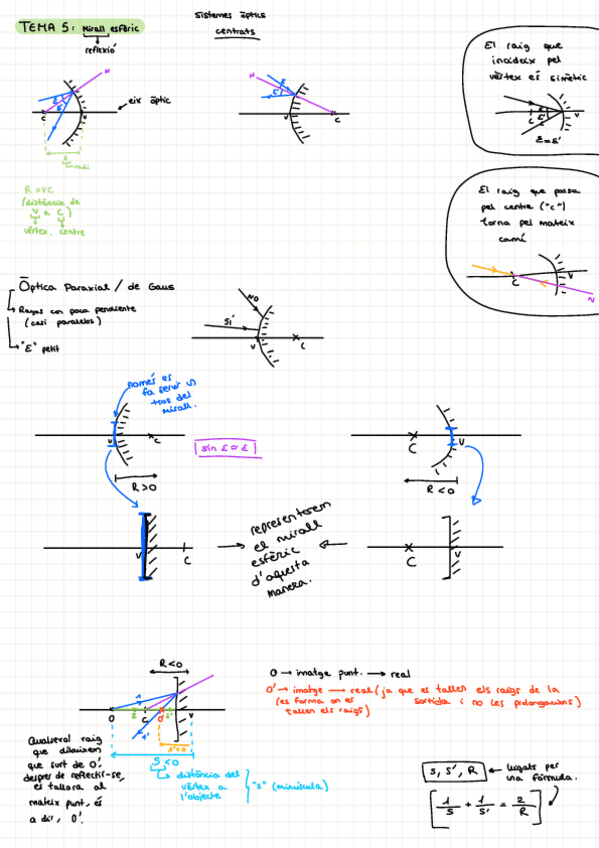 TEMA 5: Mirall esfèric
reflexió
Sistemes òptics
centrats
El raig que
incideix pel
vèrtex és simètric
N
ε
ε'
C
V
eix òptic
radi
N
ε
ε'
V
C
C
ε
ε'
V
ε=ε'
R=VC
(distància de
V a C)
vèrtex, centre
El raig que passa
pel centre ("c")
torna pel mateix
camí
C
V
N
Òptica Paraxial / de Gaus
Rayos con poca pendiente
(casi paralelos)
"ε" petit
NO
SI'
V
C
només es
fa servir un
tros del
mirall.
V
C
sin ε ≈ ε
C
V
R>0
R<0
V
C
representarem
el mirall
esfèric
d'aquesta
manera.
C
V
R<0
O → imatge punt. → real
O' → imatge → real (ja que es tallen els raigs de la
(es forma on es
sortida i no les prolongacions)
tallen els raigs)
1
2
2'
1'
O
C
O'
V
s'<0
S<0
Qualsevol raig
que dibuixem
que surt de O,
després de reflectir-se,
es tallarà al
mateix punt, és
a dir, O'.
distància del
vèrtex a
l'objecte
"s" (minúscula)
S, S', R ← lligats per
una fórmula.
[1/S + 1/S' = 2/R]